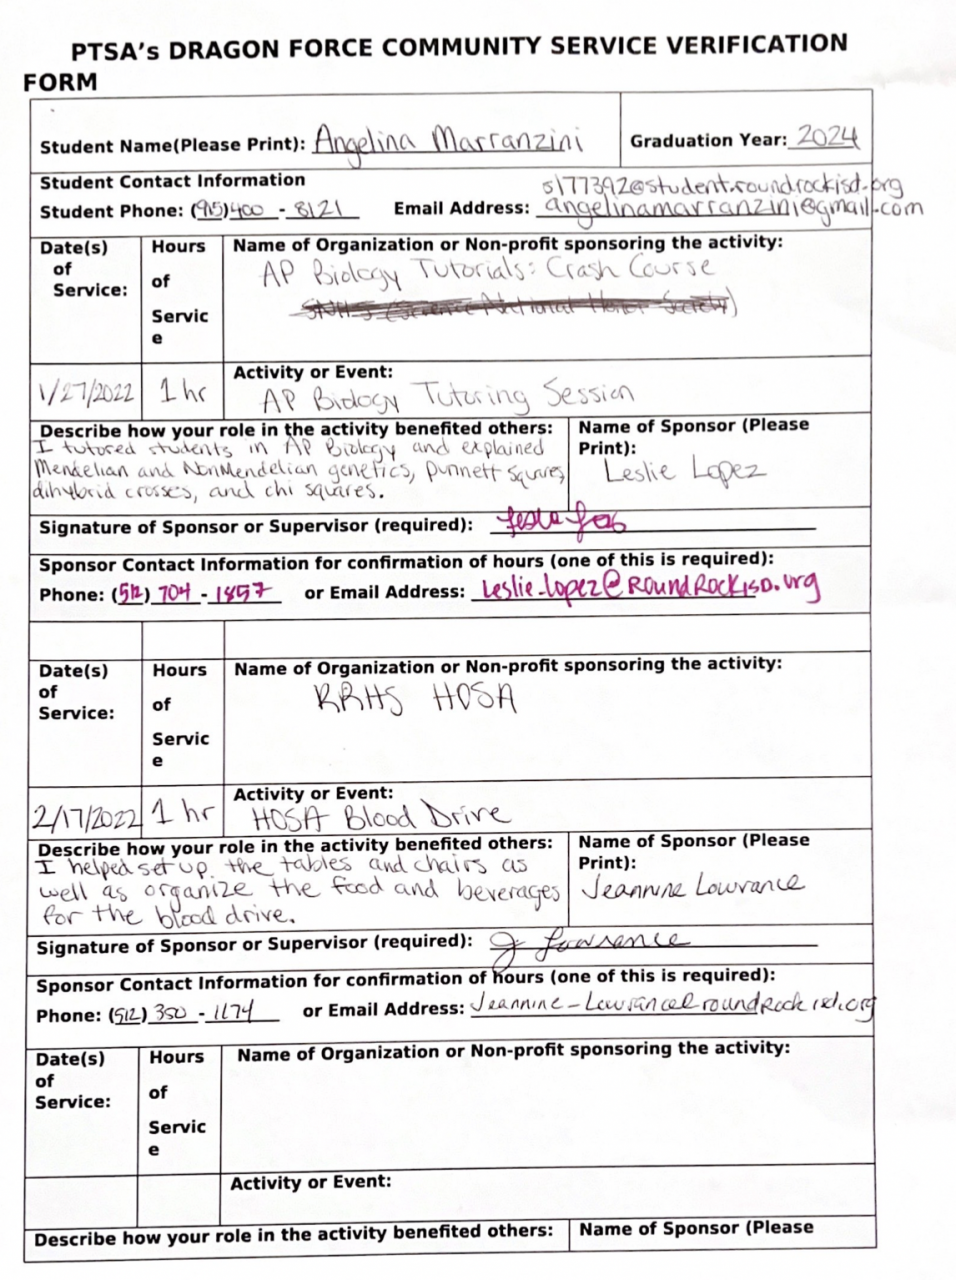 PTSA's DRAGON FORCE COMMUNITY SERVICE VERIFICATION
FORM
Student Name(Please Print): Angelina Marranzini
Graduation Year: 2024
Student Contact Information
s177392@student.roundrockisd.org
Student Phone: (915)400 - 8121 Email Address: angelinamarranzini@gmail.com
Date(s)
of
Service:
Hours
of
Servic
e
Name of Organization or Non-profit sponsoring the activity:
AP Biology Tutorials: Crash Course
(Science National Honor Society)
1/27/2022
1 hr
Activity or Event:
AP Biology Tutoring Session
Describe how your role in the activity benefited others:
I tutored students in AP Biology and explained
Mendelian and NonMendelian genetics, punnett squares,
dihybrid crosses, and chi squares.
Name of Sponsor (Please
Print):
Leslie Lopez
Signature of Sponsor or Supervisor (required):
Sponsor Contact Information for confirmation of hours (one of this is required):
Phone: (512) 704 - 1857 or Email Address: Leslie_Lopez@RoundRockisd.org
Date(s)
of
Service:
Hours
of
Servic
e
Name of Organization or Non-profit sponsoring the activity:
RRHS HOSA
2/17/2022
1 hr
Activity or Event:
HOSA Blood Drive
Describe how your role in the activity benefited others:
I helped set up the tables and chairs as
well as organize the food and beverages
for the blood drive.
Name of Sponsor (Please
Print):
Jeannine Lowrance
Signature of Sponsor or Supervisor (required): J Lowrance
Sponsor Contact Information for confirmation of hours (one of this is required):
Phone: (512) 350 - 1174 or Email Address: Jeannine_Lowrance@roundrockisd.org
Date(s)
of
Service:
Hours
of
Servic
e
Name of Organization or Non-profit sponsoring the activity:
Activity or Event:
Describe how your role in the activity benefited others:
Name of Sponsor (Please